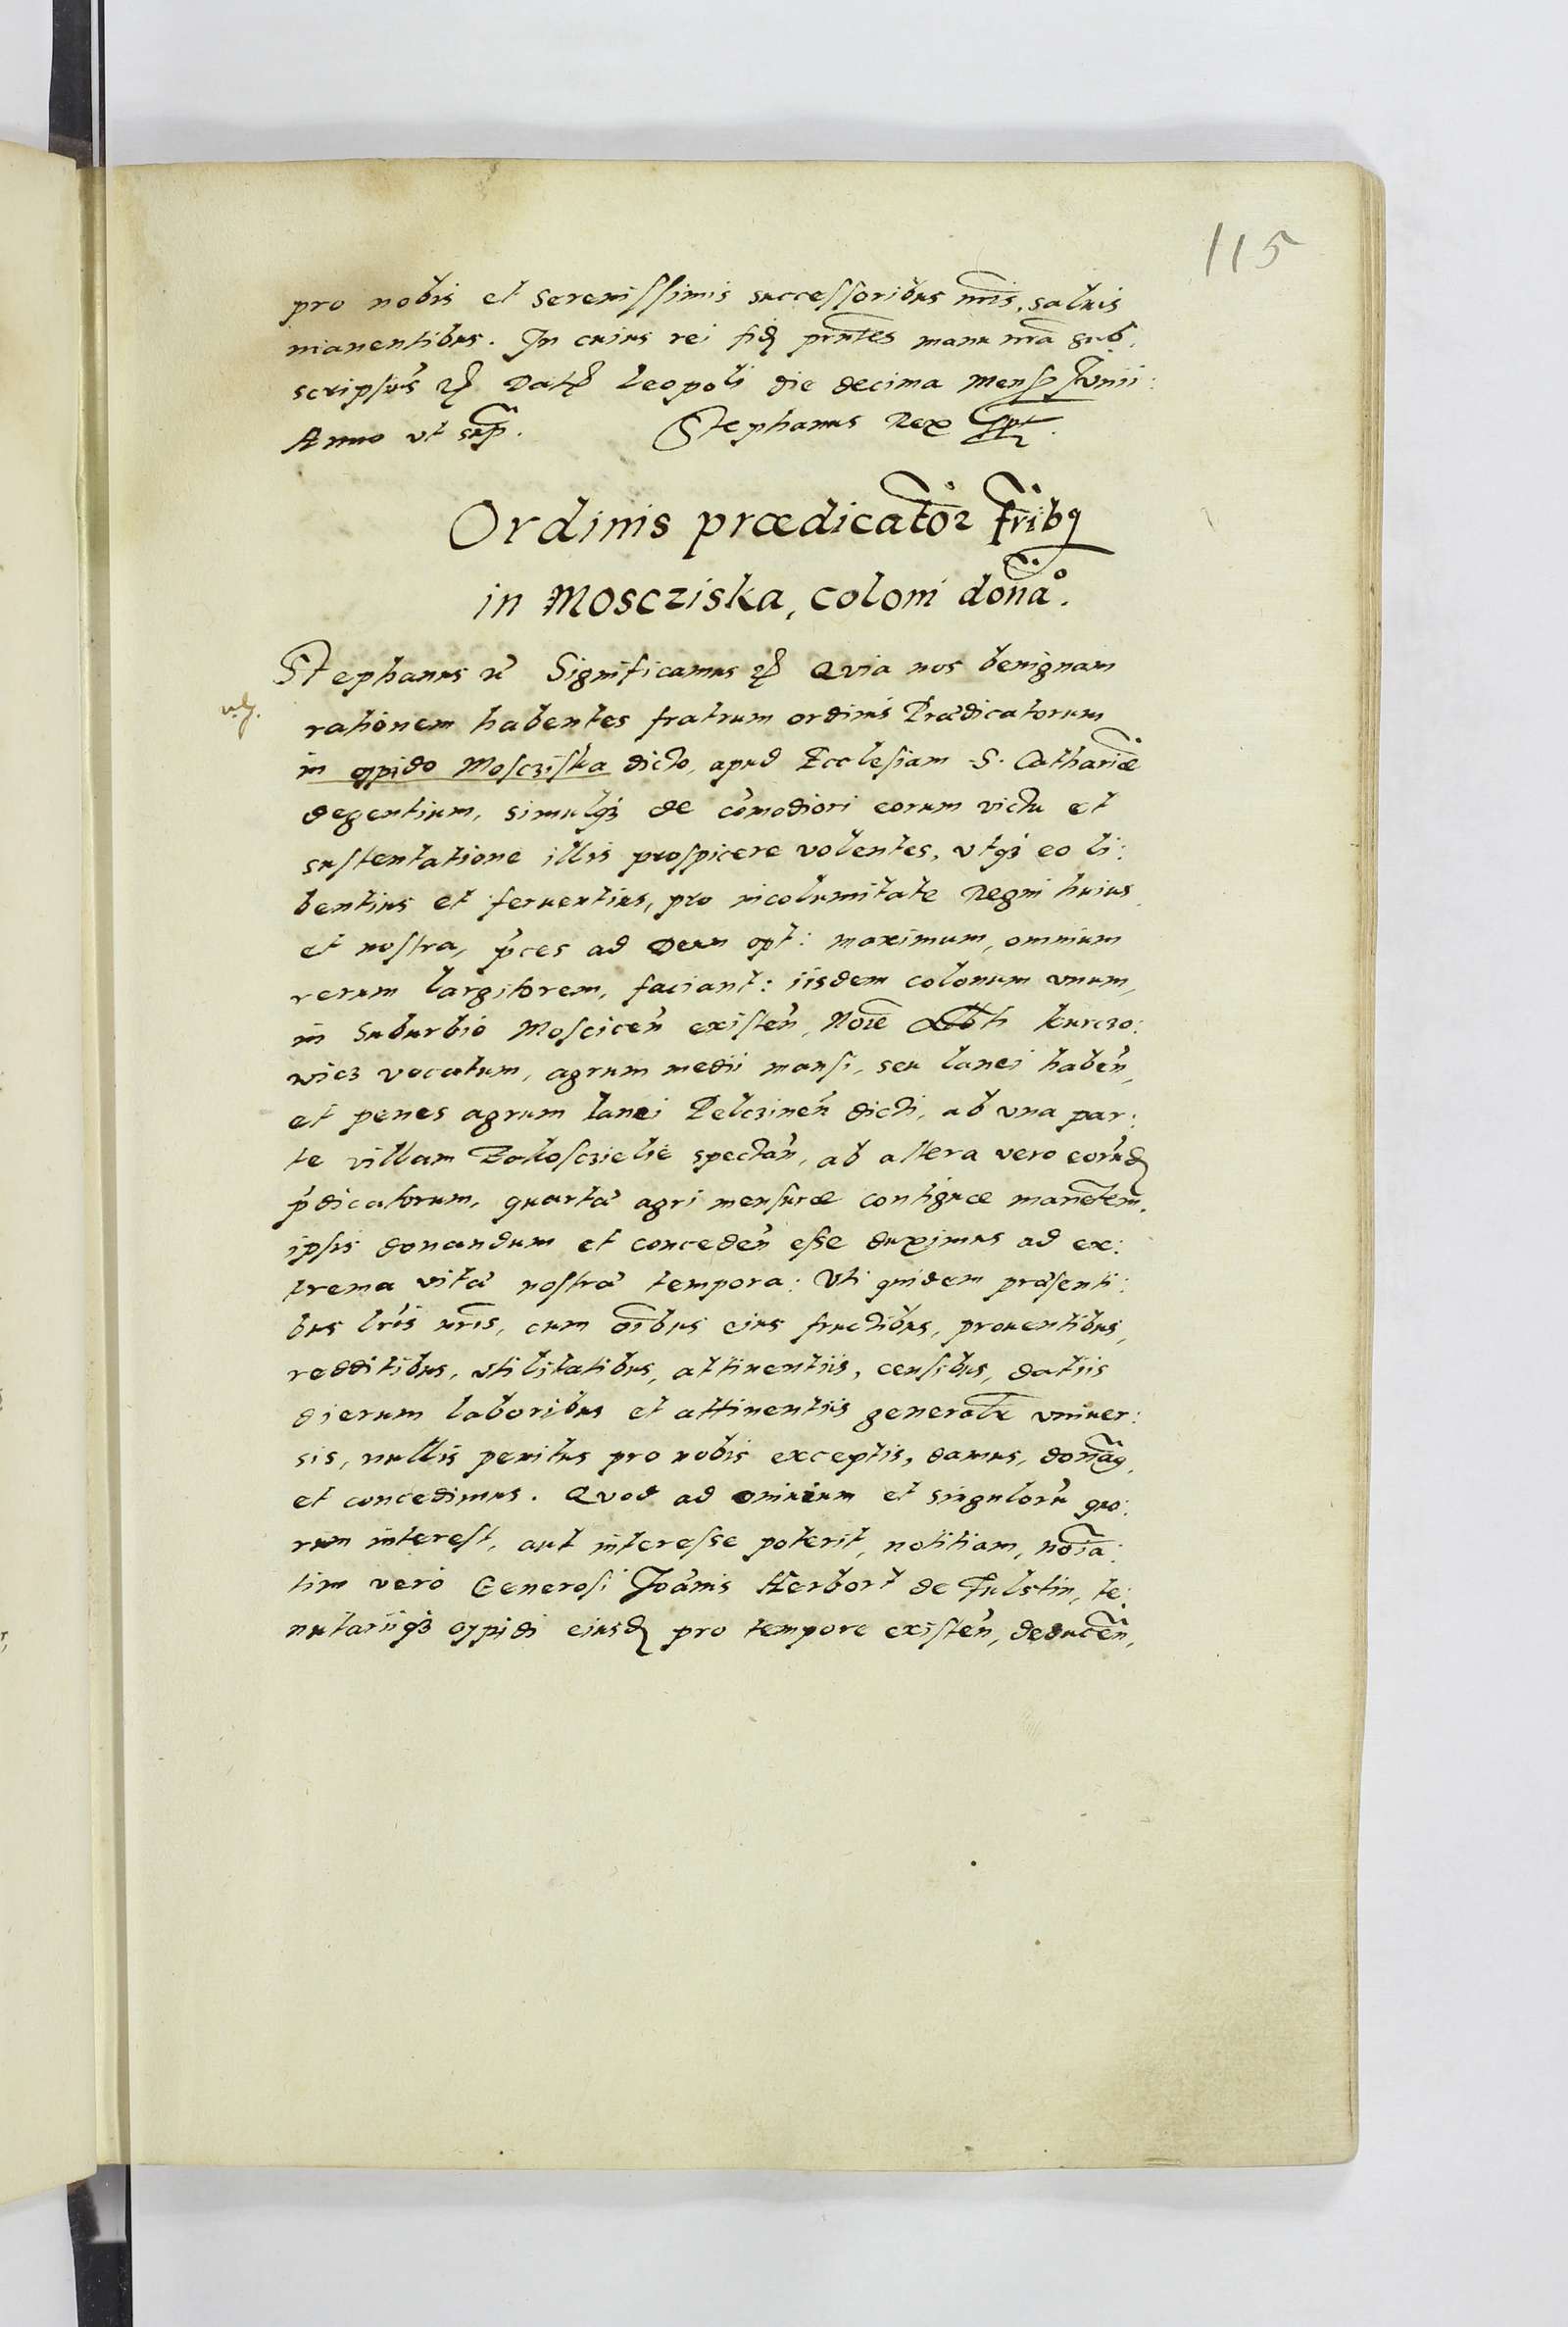 115
pro nobis et serenissimis successoribus nris, saluis
manentibus. In cuius rei fid prntes manu nra sub,
scripsim̃s &c Dat Leopoli die decima Mens Junii:
Anno vt sup. Stephanus Rex sspt.
Ordinis prædicator̃ fribq
in Moscziska, coloni dona°.
Stephanus &c Significamus &c Quia nos benignam
rationem habentes fratrum ordinis Prædicatorum
in oppido Mosczyska dicto, apud Ecclesiam S. Catharinæ
degentium, simulq3 de comodiori eorum victu et
sustentatione illis prospicere volentes, vtq3 eo li:
bentius et feruentius, pro incolumitate Regni huius
et nostra, p̃ces ad Deum opt: maximum, omnium
rerum largitorem, faciant: iisdem colonum vnum,
in Suburbio Moscicen̄ existen̄, Noīe Kurczo:
wicz vocatum, agrum medii mansi, seu lanei haben̄,
et penes agrum lanei Pelczinen̄ dicti, ab vna par:
te villam Zakosczielie spectan̄, ab altera vero eorūd
p̃dicatorum, quarta agri mensuræ contiguæ manētem,
ipsis donandum et conceden̄ esse duximus ad ex:
trema vitæ nostræ tempora: Vti quidem præsenti:
bus lr̃is nr̃is, cum oībus eius fructibus, prouentibus,
redditibus, vtilitatibus, attinentiis, censibus, datiis
dierum laboribus et attinentiis generalr̃ vniuer:
sis, nullis penitus pro nobis exceptis, damus, donāg,
et concedimus. Quod ad omnium et singulorū quo:
rum interest, aut interesse poterit, notitiam, noīa:
tim vero Generosi Joānis Herbort de Fulstin, te:
nutariiq3 oppidi eiusd pro tempore existen̄, deducēn,